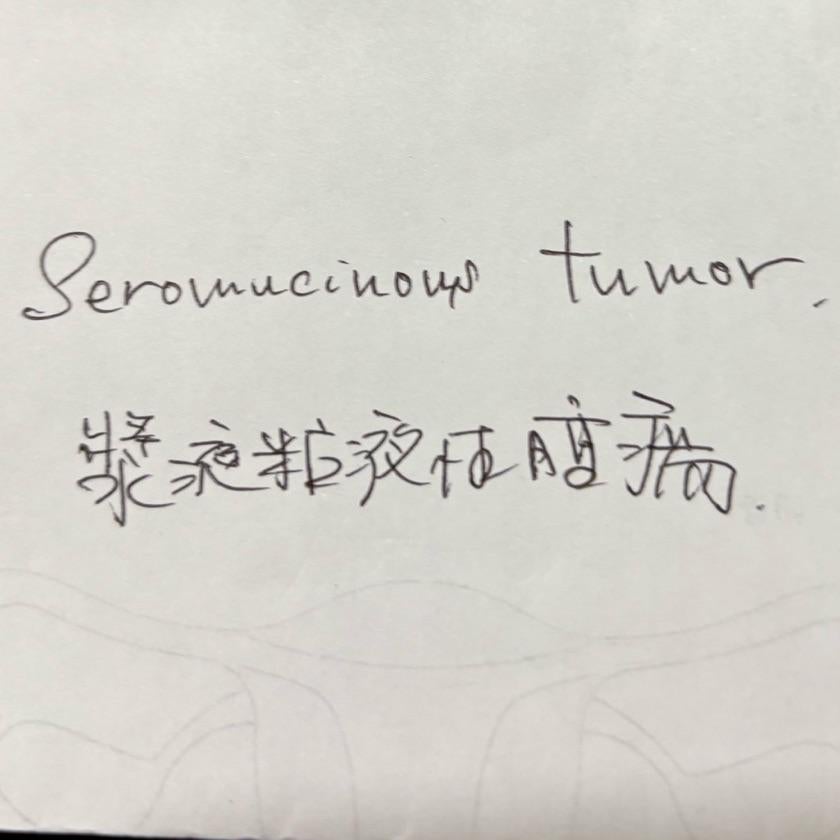 Seromucinous tumor.
浆液粘液性肿瘤.